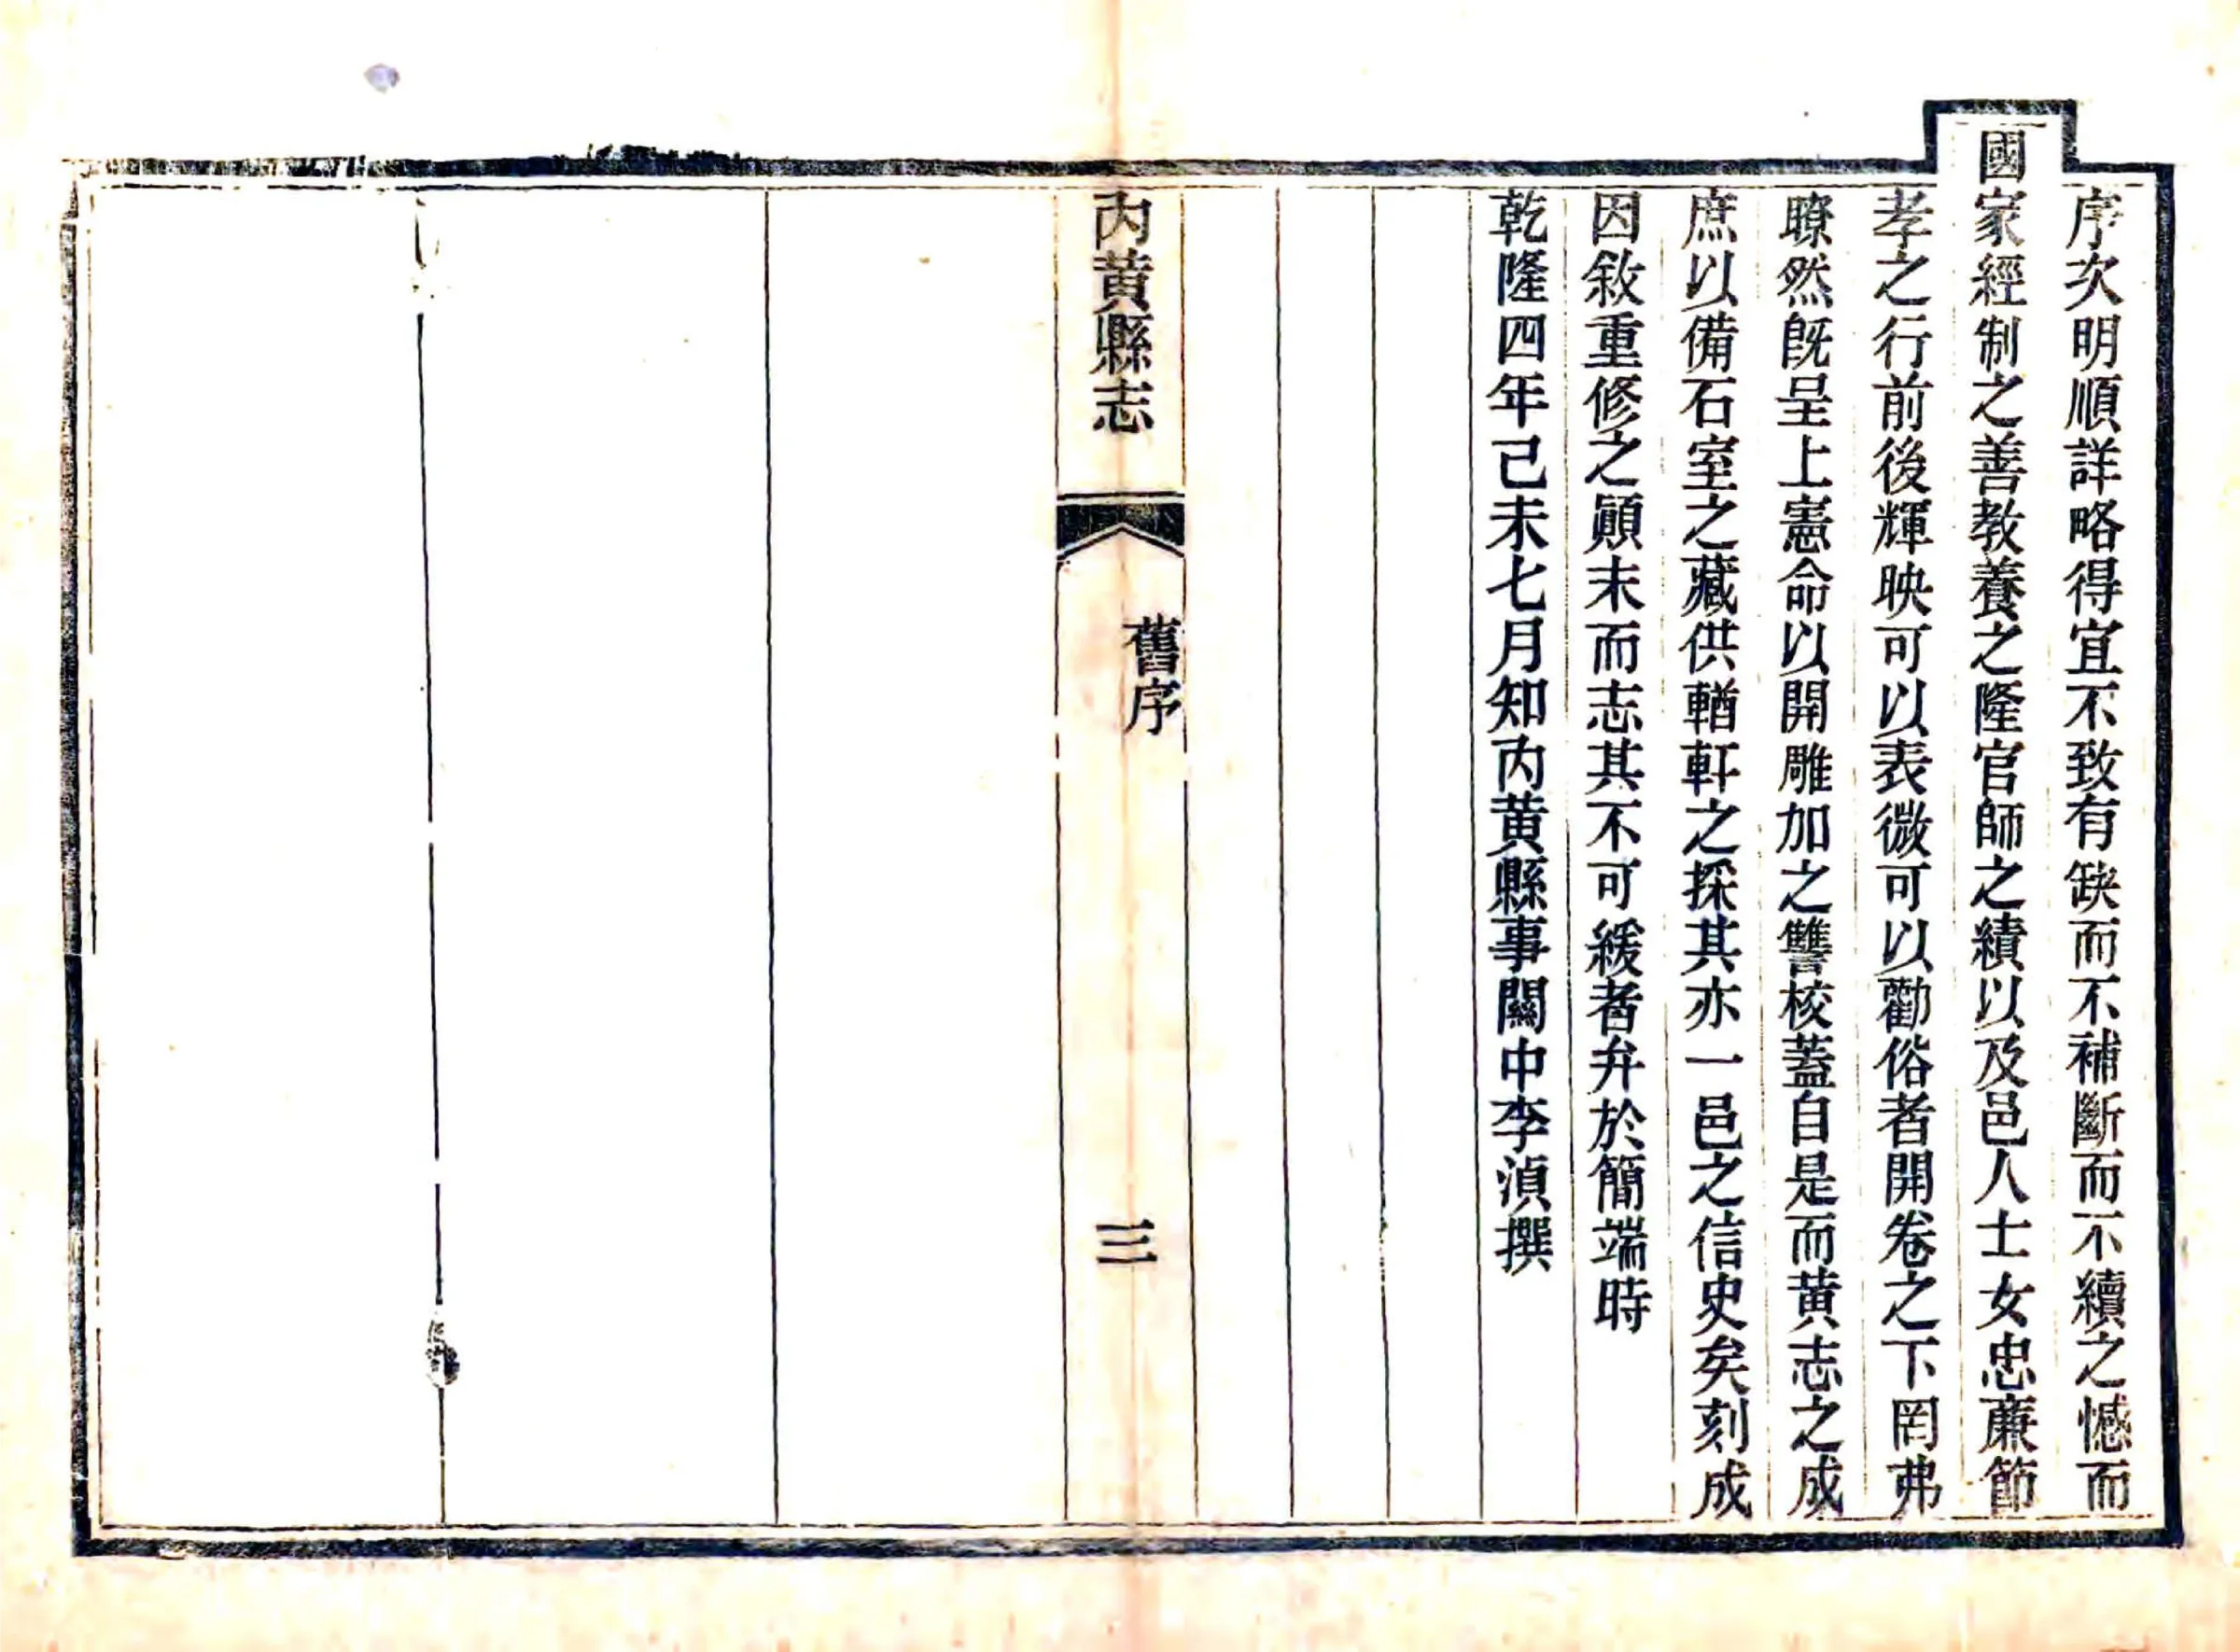 序次明順詳略得宜不致有缺而不補斷而不續之憾而
國家經制之善教養之隆官師之績以及邑人士女忠廉節
孝之行前後輝映可以表微可以勸俗者開卷之下罔弗
瞭然旣呈上憲命以開雕加之讐校蓋自是而黃志之成
庶以備石室之藏供輶軒之採其亦一邑之信史矣刻成
因敘重修之顚末而志其不可緩者弁於簡端時
乾隆四年己未七月知內黃縣事關中李湞撰
內黃縣志
舊序
三